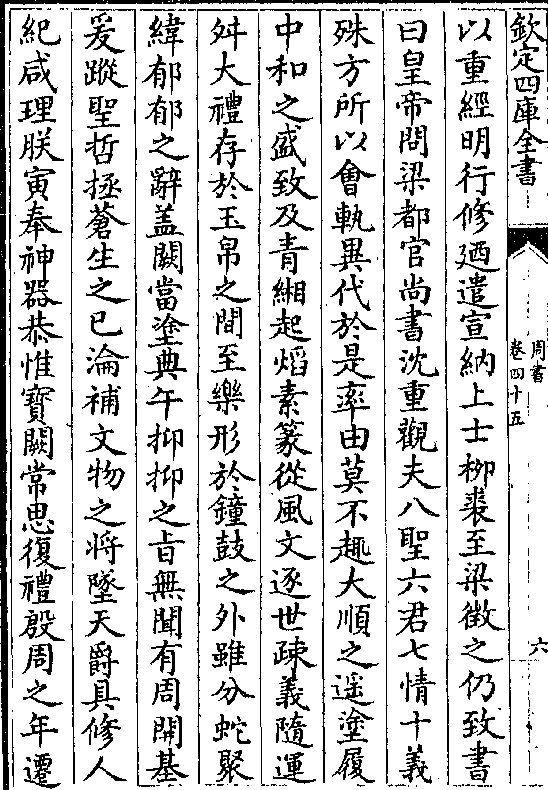 欽定四庫全書
周書
卷四十五
六
以重經明行修廼遣宣納上士柳裘至梁徴之仍致書
曰皇帝問梁都官尚書沈重觀夫八聖六君七情十義
殊方所以會軌異代於是率由莫不趣大順之遥塗履
中和之盛致及青緗起熖素篆從風文逐世疎義隨運
舛大禮存於玉帛之間至樂形於鐘鼓之外雖分蛇聚
緯郁郁之辭蓋闕當塗典午抑抑之㫖無聞有周開基
爰蹤聖哲拯蒼生之已淪補文物之將墜天爵具修人
紀咸理朕寅奉神器恭惟寶闕常思復禮殷周之年遷